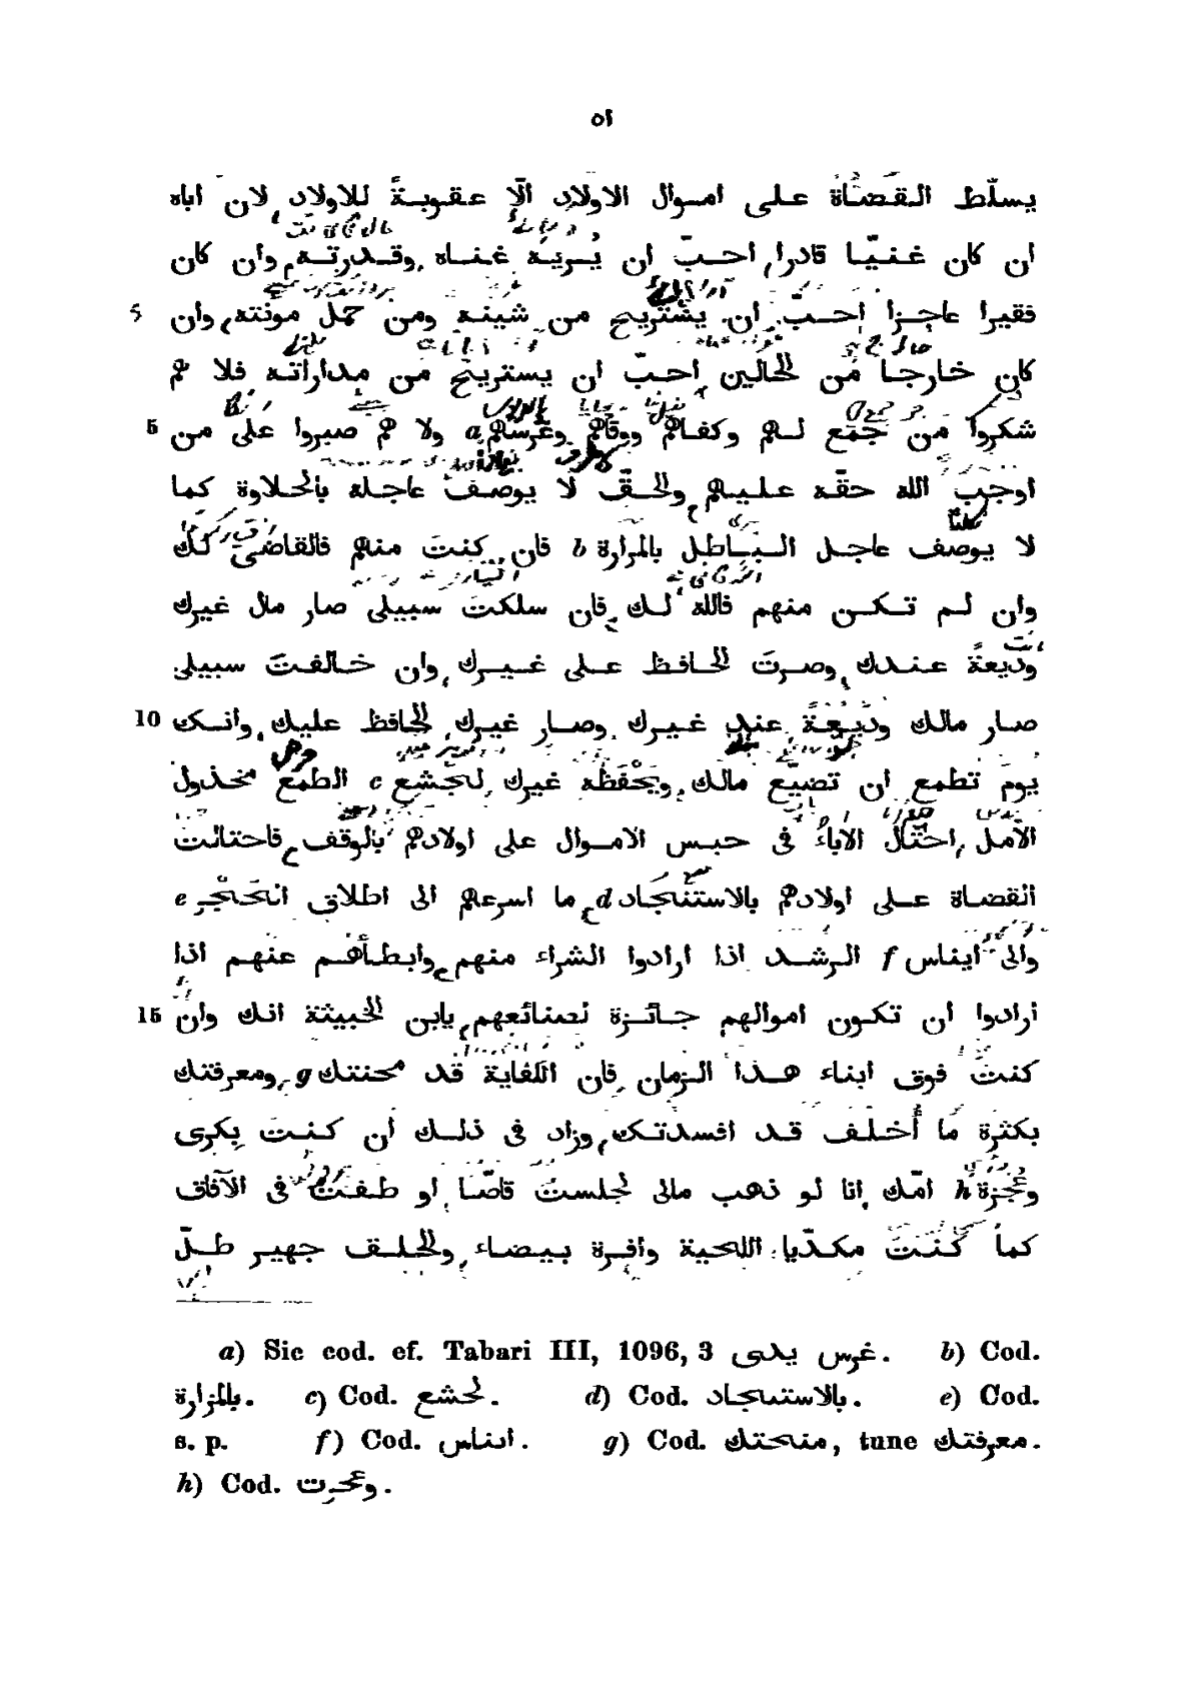 ٥١
يسلّط القضاة على اموال الاولاد الّا عقوبةً للاولاد لان اباه
ان كان غنيّا قادرا احبّ ان يُريَه غناه وقدرته وان كان
5 فقيرا عاجزا احبّ ان يستريح من شينه ومن حمل مونته وان
كان خارجا من الحالين احبّ ان يستريح من مداراته فلا هم
5 شكروا من جمع لهم وكفاهم ووقاهم وغرسهم a ولا هم صبروا على من
اوجب الله حقّه عليهم والحقّ لا يوصف عاجله بالحلاوة كما
لا يوصف عاجل الباطل بالمرارة b فان كنتَ منهم فالقاضى لك
وان لم تكن منهم فالله لك فان سلكتَ سبيلى صار مال غيرك
وديعةً عندك وصرتَ الحافظ على غيرك وان خالفتَ سبيلى
10 صار مالك وديعةً عند غيرك وصار غيرك الحافظ عليك وانك
يومَ تطمع ان تضيّع مالك ويَحْفَظه غيرك لجَشِع c الطمع مخذول
الأمل احتال الآباءُ فى حبس الاموال على اولادهم بالوقف فاحتالت
القضاة على اولادهم بالاستنجاد d ما اسرعهم الى اطلاق الحَجْر e
والى ايناس f الرشد اذا ارادوا الشراء منهم وابطأهم عنهم اذا
15 ارادوا ان تكون اموالهم جائزة لصنائعهم يابن الخبيثة انك وان
كنتَ فوق ابناء هذا الزمان فان الكفاية قد محنتك g ومعرفتك
بكثرة ما أُخلّف قد افسدتك وزاد فى ذلك ان كنتَ بِكرى
وعُجْزة h امّك انا لو ذهب مالى لجلستُ قاصّا او طفتُ فى الآفاق
كما كُنْتُ مكدّيا اللحية وافرة بيضاء والحلق جهير طلّ
a) Sic cod. cf. Tabari III, 1096, 3 غرس يدى. b) Cod.
بالمزارة. c) Cod. لحشع. d) Cod. بالاستىجاد. e) Cod.
s. p. f) Cod. اىىاس. g) Cod. منحتك, tune معرفتك.
h) Cod. وعجرت.